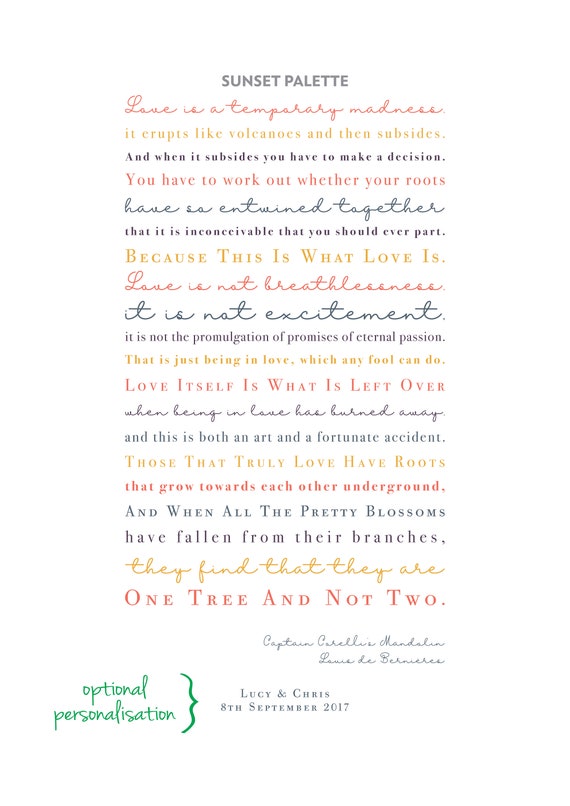 SUNSET PALETTE
Love is a temporary madness.
it erupts like volcanoes and then subsides.
And when it subsides you have to make a decision.
You have to work out whether your roots
have so entwined together
that it is inconceivable that you should ever part.
Because This Is What Love Is.
Love is not breathlessness.
it is not excitement.
it is not the promulgation of promises of eternal passion.
That is just being in love, which any fool can do.
Love Itself Is What Is Left Over
when being in love has burned away.
and this is both an art and a fortunate accident.
Those That Truly Love Have Roots
that grow towards each other underground,
And When All The Pretty Blossoms
have fallen from their branches,
they find that they are
One Tree And Not Two.
Captain Corelli's Mandolin
Louis de Bernieres
optional
personalisation
Lucy & Chris
8th September 2017